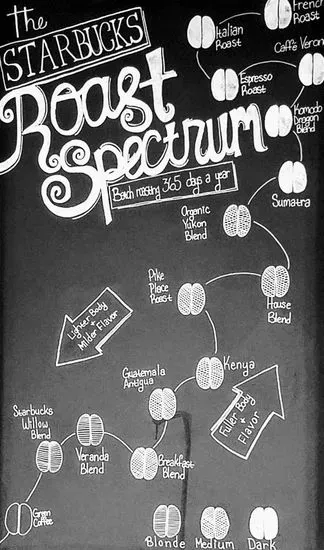 The
STARBUCKS
Roast
Spectrum
Batch roasting 365 days a year
French
Roast
Italian
Roast
Caffè Veron
Espresso
Roast
Komodo
Dragon
Blend
Sumatra
Organic
Yukon
Blend
House
Blend
Pike
Place
Roast
Lighter Body
+
Milder Flavor
Kenya
Guatemala
Antigua
Fuller Body
+
Flavor
Starbucks
Willow
Blend
Veranda
Blend
Breakfast
Blend
Green
Coffee
Blonde
Medium
Dark